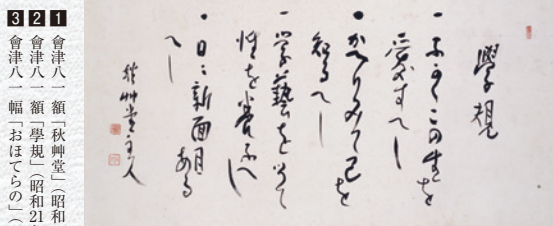 學規
一ふかくこの生を
愛すへし
一かへりみて己を
知るへし
一学藝を以て
性を養ふへし
一日々新面目ある
へし
秋艸堂主人
1 會津八一 額「秋艸堂」(昭和
2 會津八一 額「學規」(昭和21
3 會津八一 幅「おほてらの」(